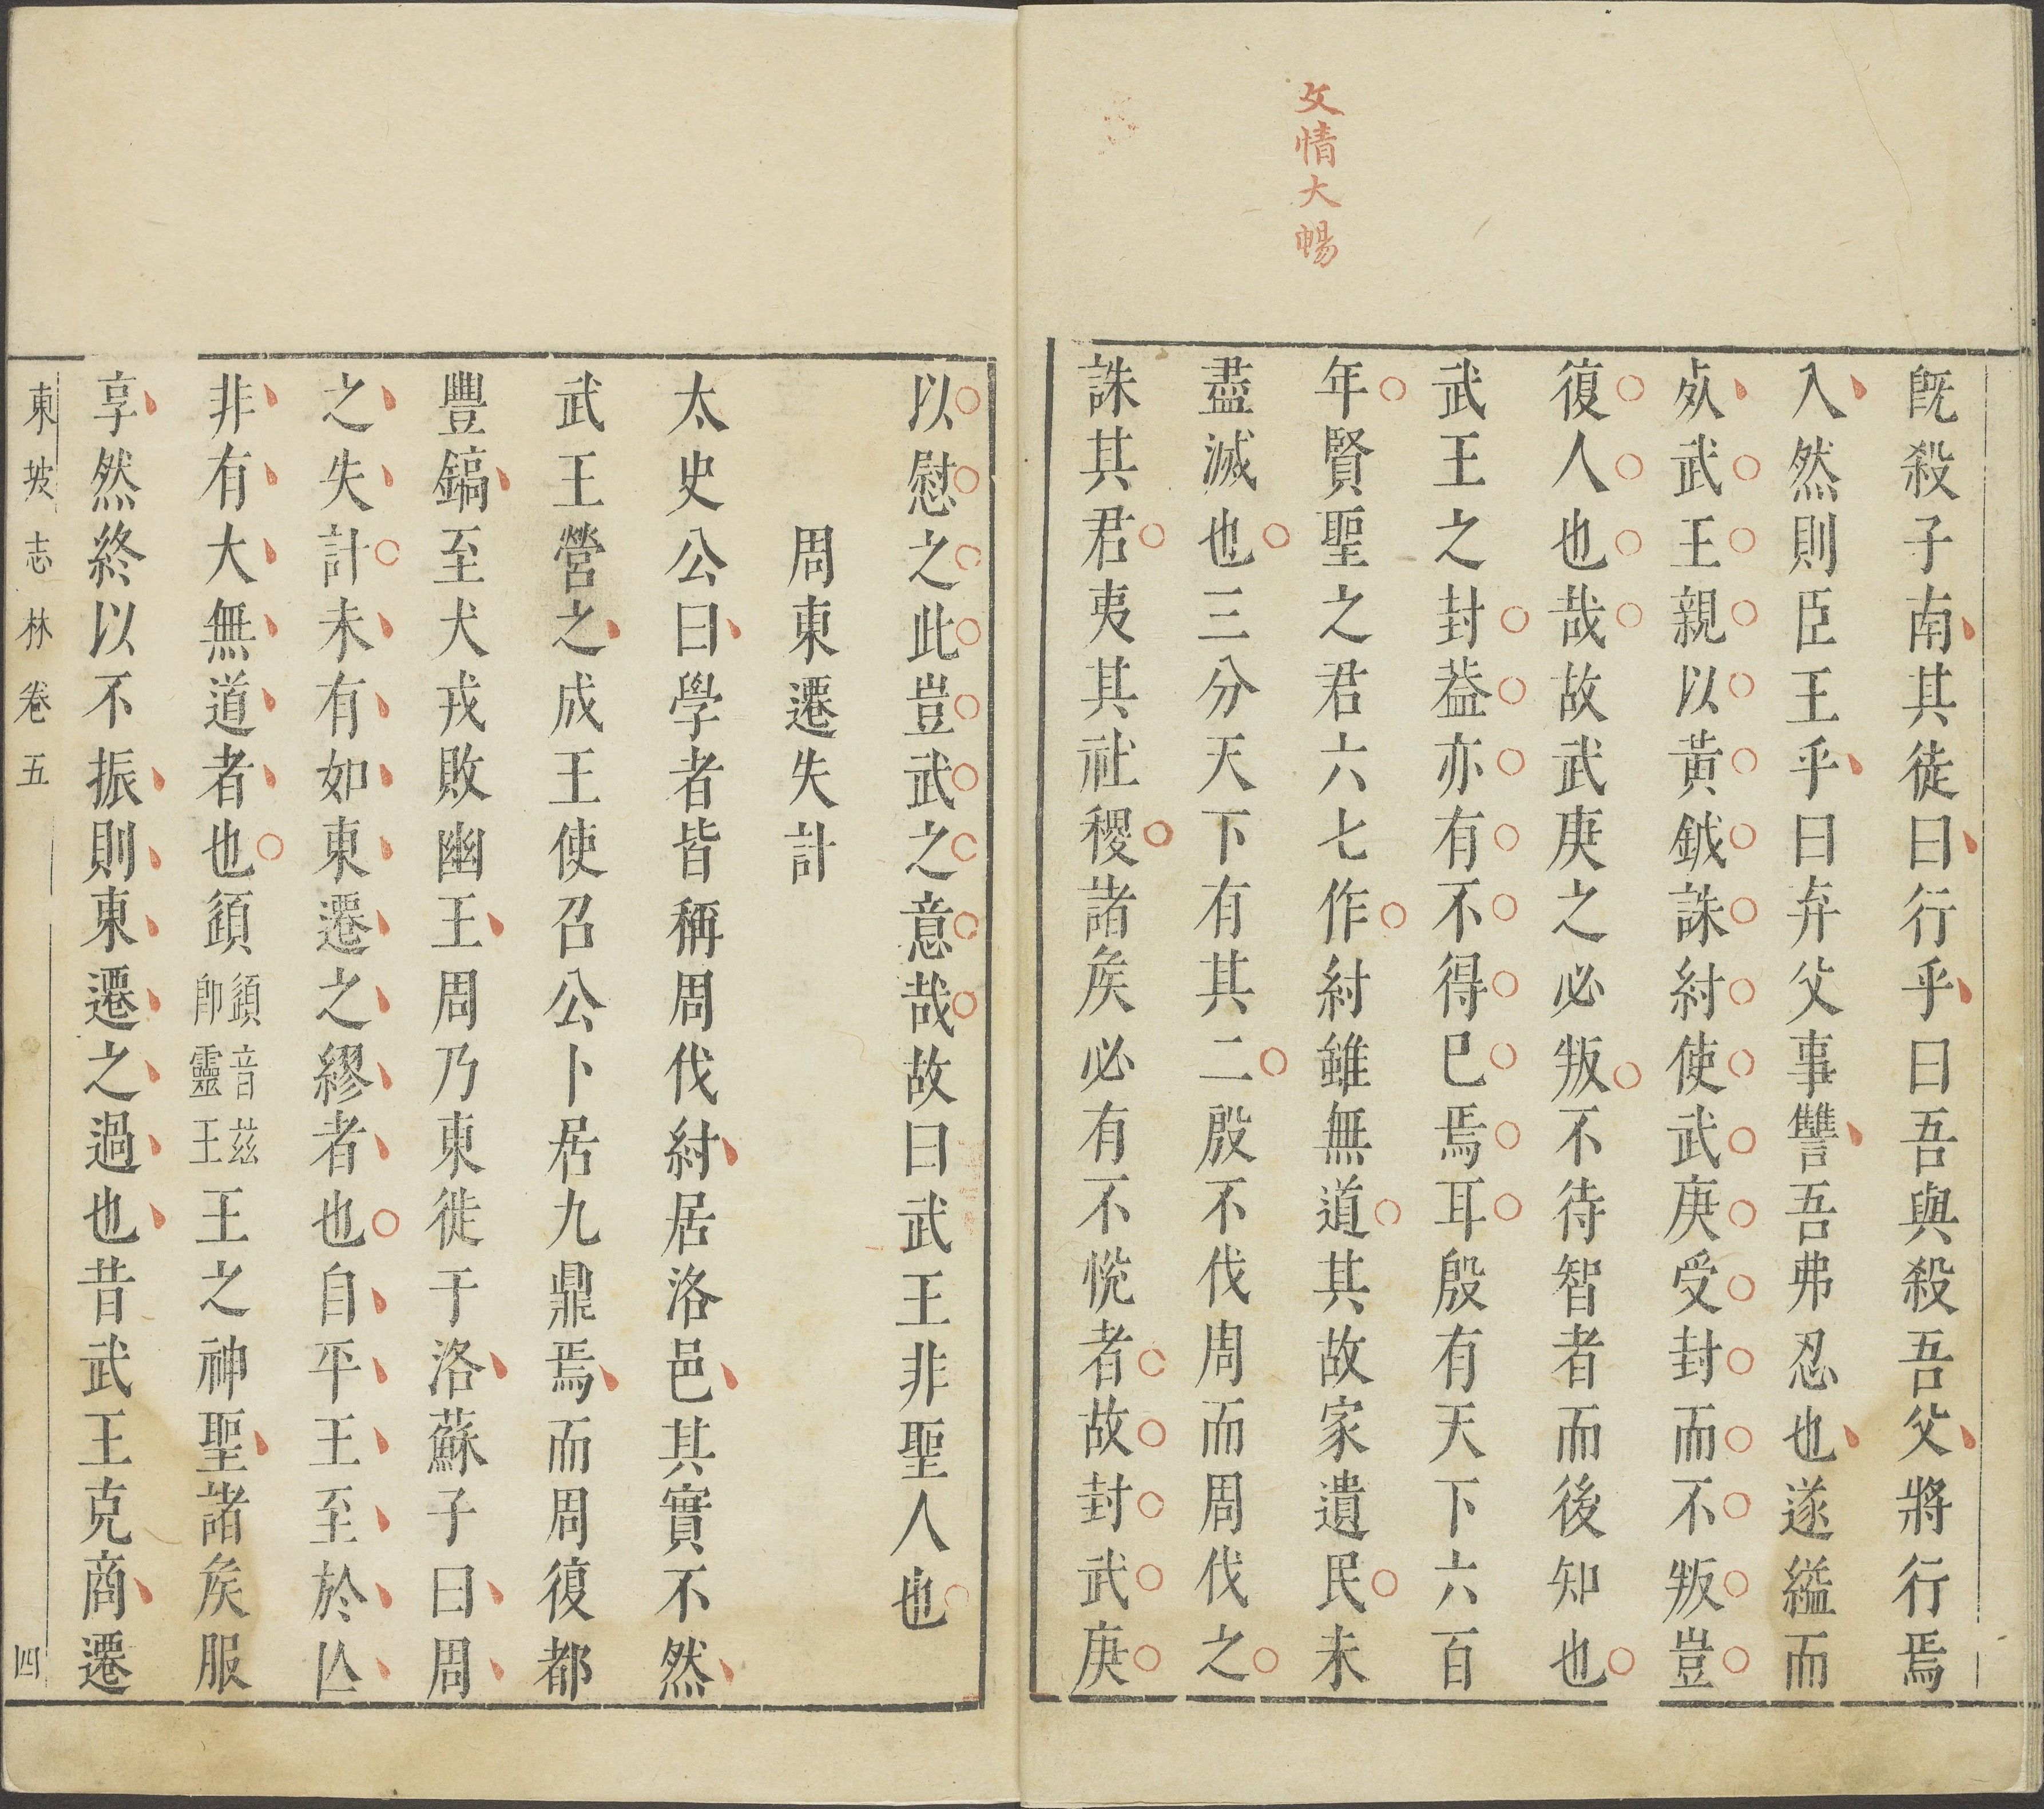 文情大暢
既殺子南其徒曰行乎曰吾與殺吾父將行焉
入然則臣王乎曰弃父事讐吾弗忍也遂縊而
死武王親以黃鉞誅紂使武庚受封而不叛豈
復人也哉故武庚之必叛不待智者而後知也
武王之封葢亦有不得已焉耳殷有天下六百
年賢聖之君六七作紂雖無道其故家遺民未
盡滅也三分天下有其二殷不伐周而周伐之
誅其君夷其社稷諸矦必有不悦者故封武庚
以慰之此豈武之意哉故曰武王非聖人也
周東遷失計
太史公曰學者皆稱周伐紂居洛邑其實不然
武王營之成王使召公卜居九鼎焉而周復都
豐鎬至犬戎敗幽王周乃東徙于洛蘇子曰周
之失計未有如東遷之繆者也自平王至於亾
非有大無道者也頾頾音茲卽靈王王之神聖諸矦服
享然終以不振則東遷之過也昔武王克商遷
東坡志林卷五 四